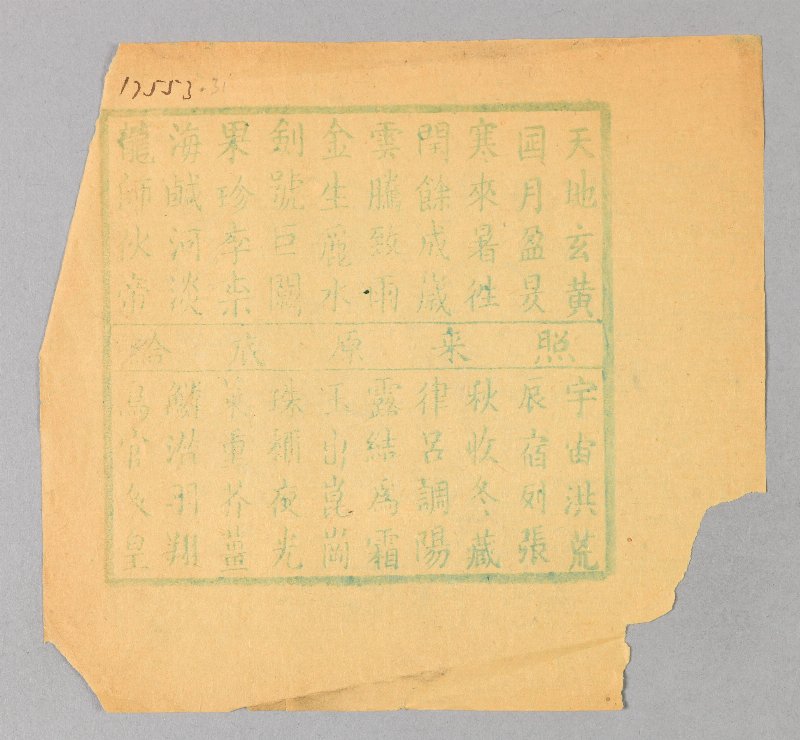 17553.31
天地玄黃 宇宙洪荒
囸月盈昃 辰宿列張
寒來暑徃 秋收冬藏
閏餘成歲 律呂調陽
雲騰致雨 露結爲霜
金生麗水 玉出崑崗
釼號巨闕 珠稱夜光
果珍李柰 菜重芥薑
海鹹河淡 鱗潛羽翔
龍師伙帝 鳥官人皇
照来原成